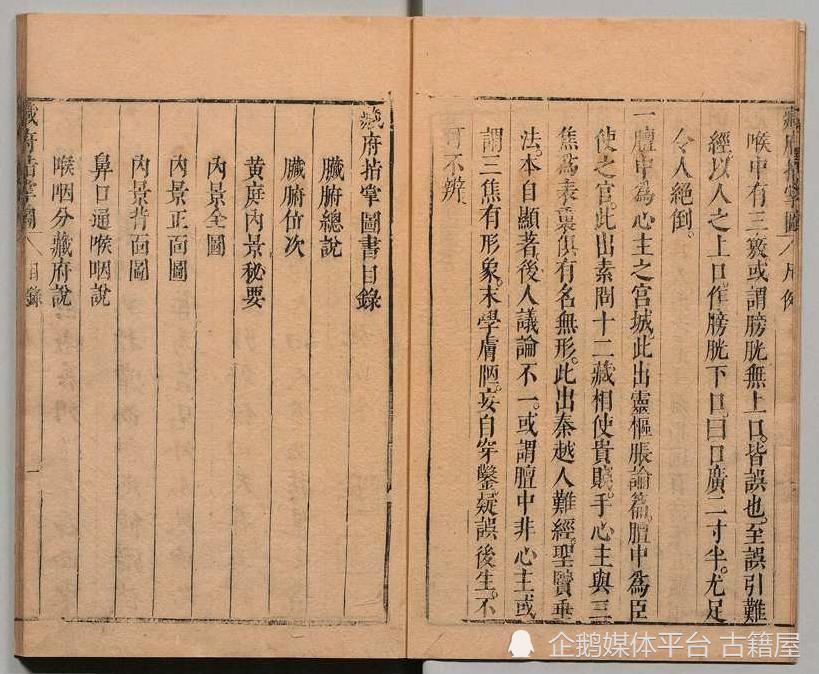 臟腑指掌圖 凡例
喉中有三竅或謂膀胱無上口。皆誤也。至誤引難
經以人之上口。作膀胱下口。曰口廣二寸半。尤足
令人絕倒。
一膻中為心主之宮城。此出靈樞脹論篇。膻中為臣
使之官。此出素問十二藏相使貴賤。手心主與三
焦為表裏俱有名無形。此出秦越人難經。聖賢垂
法。本自顯著。後人議論不一。或謂膻中非心主。或
謂三焦有形象。末學膚陋。妄自穿鑿。疑誤後生。不
可不辨。
藏府指掌圖書目錄
臟腑總說
臟腑位次
黃庭內景秘要
內景全圖
內景正面圖
內景背面圖
鼻口通喉咽說
喉咽分藏府說
藏府指掌圖 目錄 一
企鹅媒体平台 古籍屋